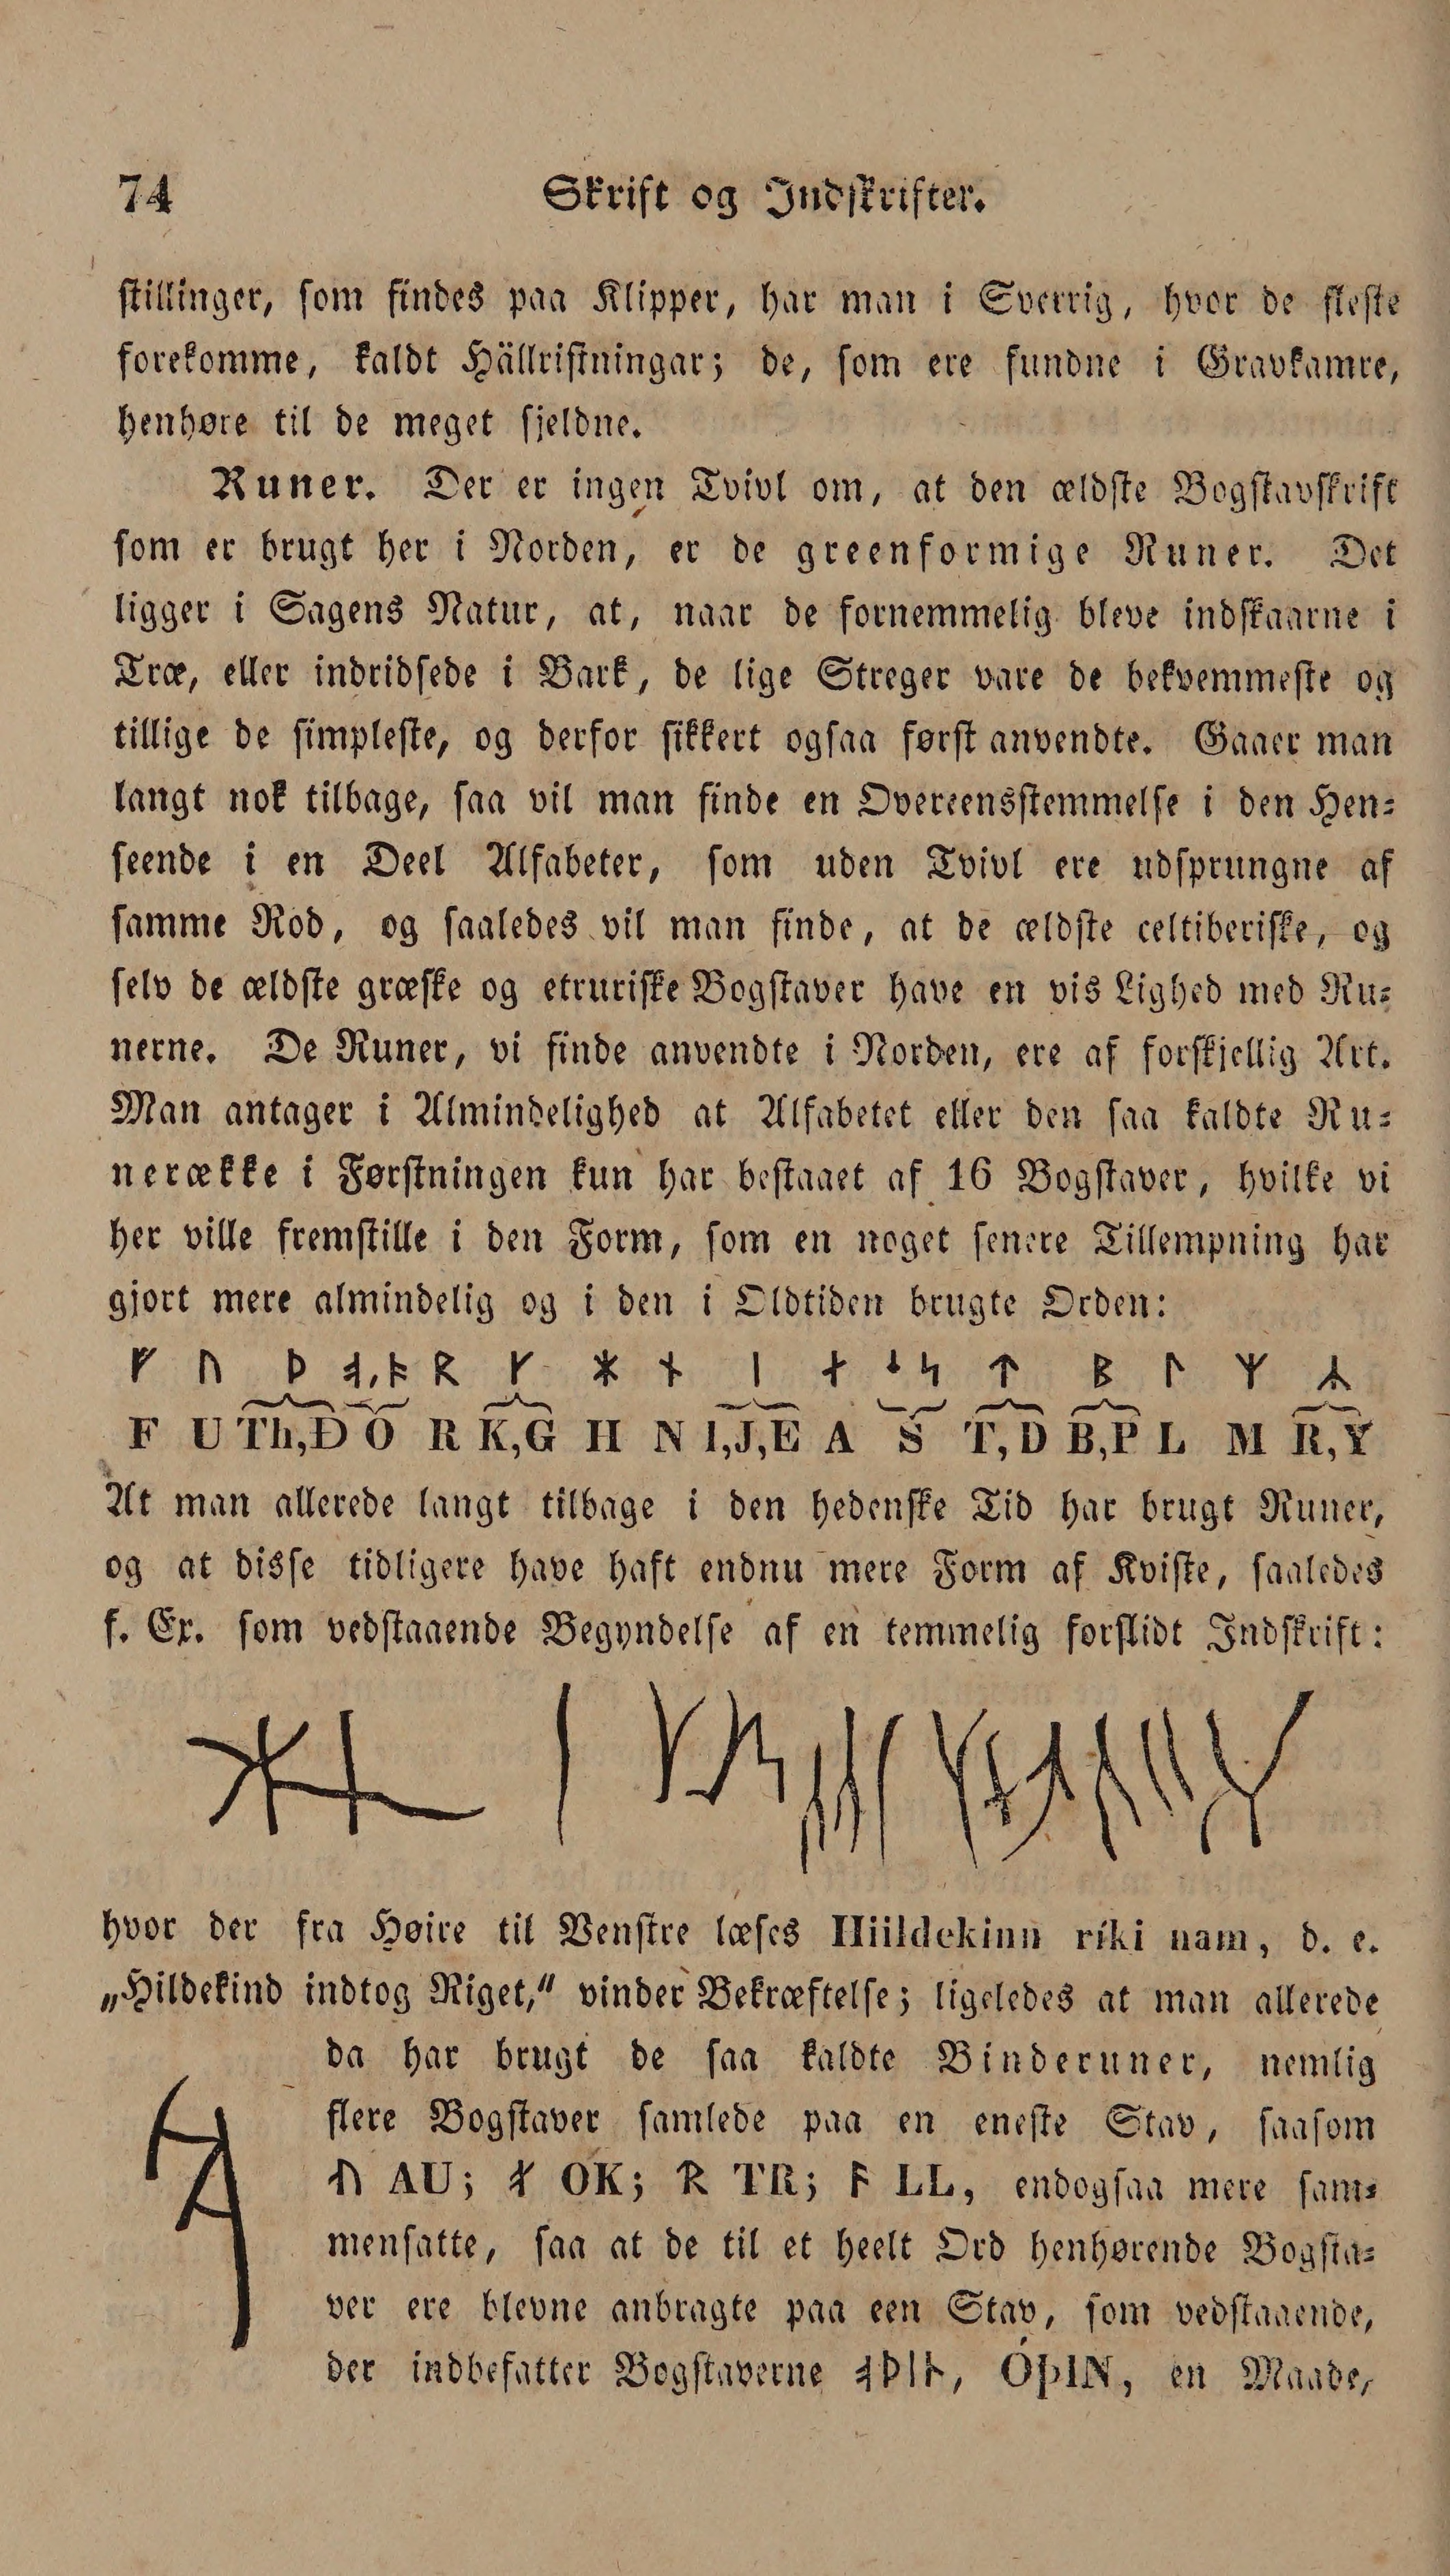 74 Skrift og Indskrifter.
stillinger, som findes paa Klipper, har man i Sverrig, hvor de fleste
forekomme, kaldt Hällristningar; de, som ere fundne i Gravkamre,
henhøre til de meget sjeldne.
Runer. Der er ingen Tvivl om, at den ældste Bogstavskrift
som er brugt her i Norden, er de greenformige Runer. Det
ligger i Sagens Natur, at, naar de fornemmelig bleve indskaarne i
Træ, eller indridsede i Bark, de lige Streger vare de bekvemmeste og
tillige de simpleste, og derfor sikkert ogsaa først anvendte. Gaaer man
langt nok tilbage, saa vil man finde en Overeensstemmelse i den Hen-
seende i en Deel Alfabeter, som uden Tvivl ere udsprungne af
samme Rod, og saaledes vil man finde, at de ældste celtiberiske, og
selv de ældste græske og etruriske Bogstaver have en vis Lighed med Ru-
nerne. De Runer, vi finde anvendte i Norden, ere af forskjellig Art.
Man antager i Almindelighed at Alfabetet eller den saa kaldte Ru-
nerække i Førstningen kun har bestaaet af 16 Bogstaver, hvilke vi
her ville fremstille i den Form, som en noget senere Tillempning har
gjort mere almindelig og i den i Oldtiden brugte Orden:
ᚠ ᚢ ᚦ ᚮ,ᚬ ᚱ ᚴ ᚼ ᚾ ᛁ ᛅ ᛌ ᛋ ᛏ ᛒ ᛚ ᛘ ᛦ
F U Th,Đ O R K,G H N I,J,E A S T,D B,P L M R,Y
At man allerede langt tilbage i den hedenske Tid har brugt Runer,
og at disse tidligere have haft endnu mere Form af Kviste, saaledes
f. Ex. som vedstaaende Begyndelse af en temmelig forslidt Indskrift:
hvor der fra Høire til Venstre læses Hiildekinn ríki nam, d. e.
„Hildekind indtog Riget,“ vinder Bekræftelse; ligeledes at man allerede
da har brugt de saa kaldte Binderuner, nemlig
flere Bogstaver samlede paa en eneste Stav, saasom
AU; OK; TR; LL, endogsaa mere sam-
mensatte, saa at de til et heelt Ord henhørende Bogsta-
ver ere blevne anbragte paa een Stav, som vedstaaende,
der indbefatter Bogstaverne ᚮᚦᛁᚿ, ÓÞIN, en Maade,